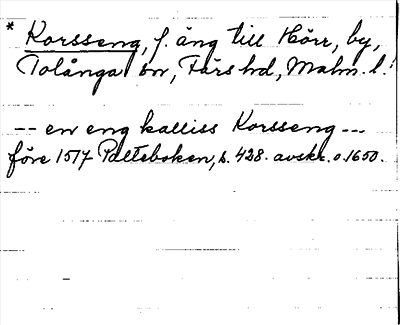 * Korsseng, f. äng till Hörr, by,
Tolånga sn, Färs hd, Malm. l.
-- en eng kalliss Korsseng ---
före 1517 Palteboken, s. 428. avskr. o. 1650.